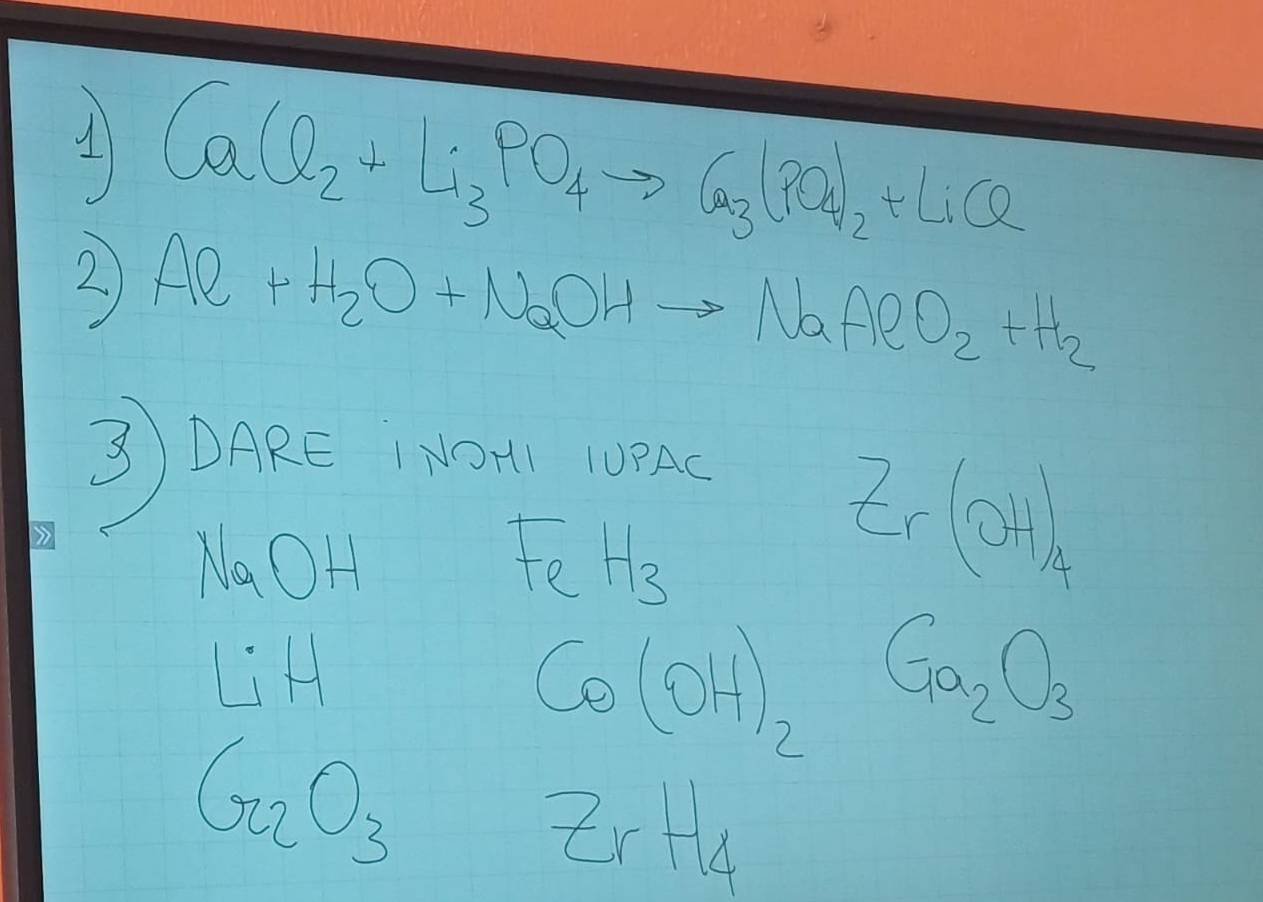 1) CaCl₂ + Li₃PO₄ → Ca₃(PO₄)₂ + LiCl
2) Al + H₂O + NaOH → NaAlO₂ + H₂
3) DARE i NOMI IUPAC
NaOH FeH₃ Zr(OH)₄
LiH Co(OH)₂ Ga₂O₃
Cr₂O₃ ZrH₄